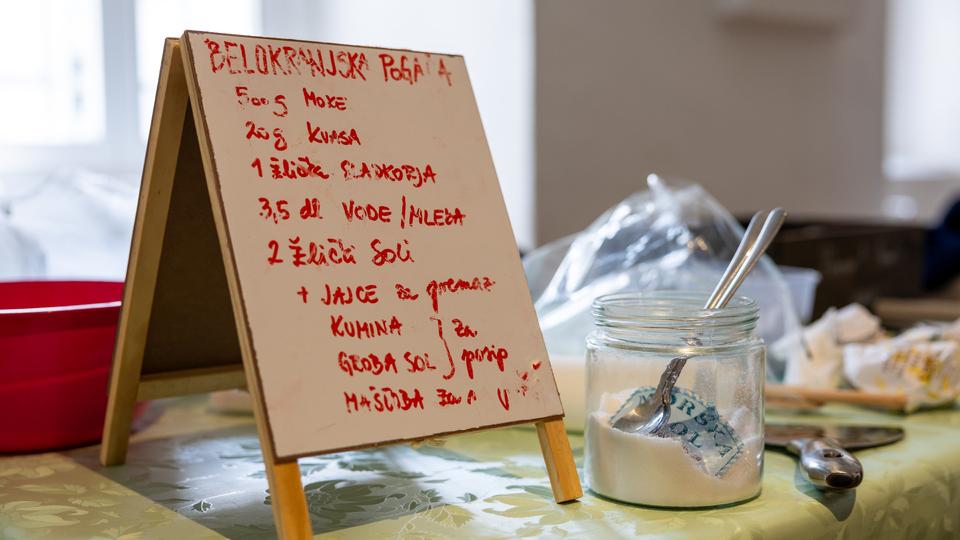 BELOKRANJSKA POGAČA
500g MOKE
20g KVASA
1 žlička SLADKORJA
3,5 dl VODE/MLEKA
2 žlički Soli
+ JAJCE za premaz
KUMINA } za
GROBA SOL } posip
MAŠČOBA
MORSKA
SOL